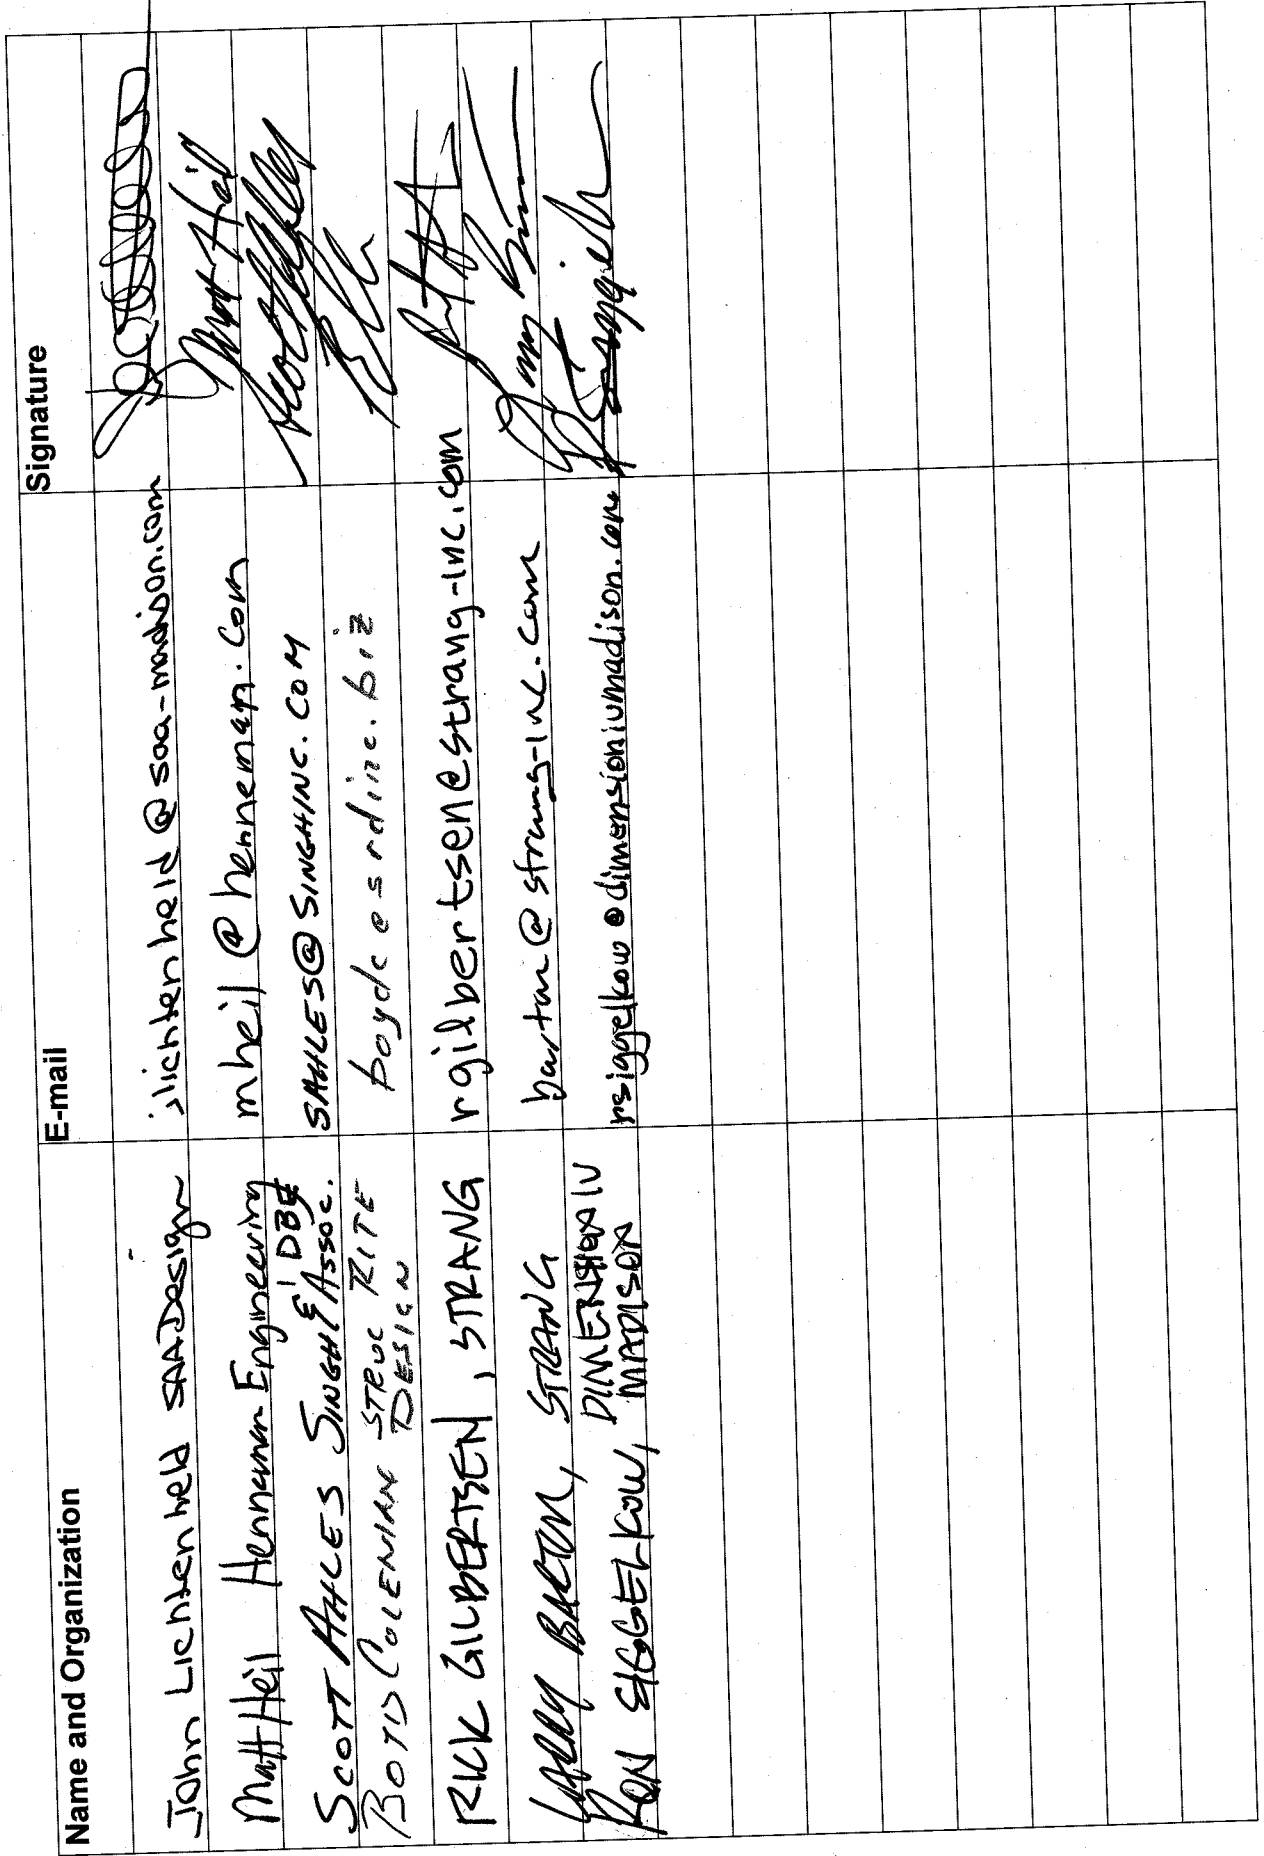 Name and Organization E-mail Signature
John Lichtenheld SAADesign jlichtenheld@saa-madison.com
Matt Heil Henneman Engineering mheil@henneman.com Matt Heil
& DBE
SCOTT AHLES SINGH & Assoc. SAHLES@SINGHINC.COM
BOYD COLEMAN STRUC RITE DESIGN boydc@srdinc.biz
RICK GILBERTSEN, STRANG rgilbertsen@strang-inc.com
LARRY BARTON, STRANG barton@strang-inc.com
RON SIGGELKOW, DIMENSION IV MADISON rsiggelkow@dimensionivmadison.com